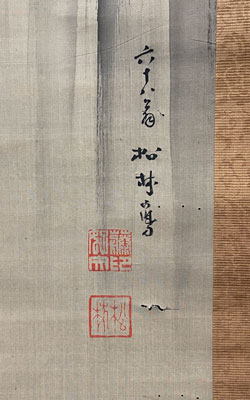 六十八翁 松林寫
松林